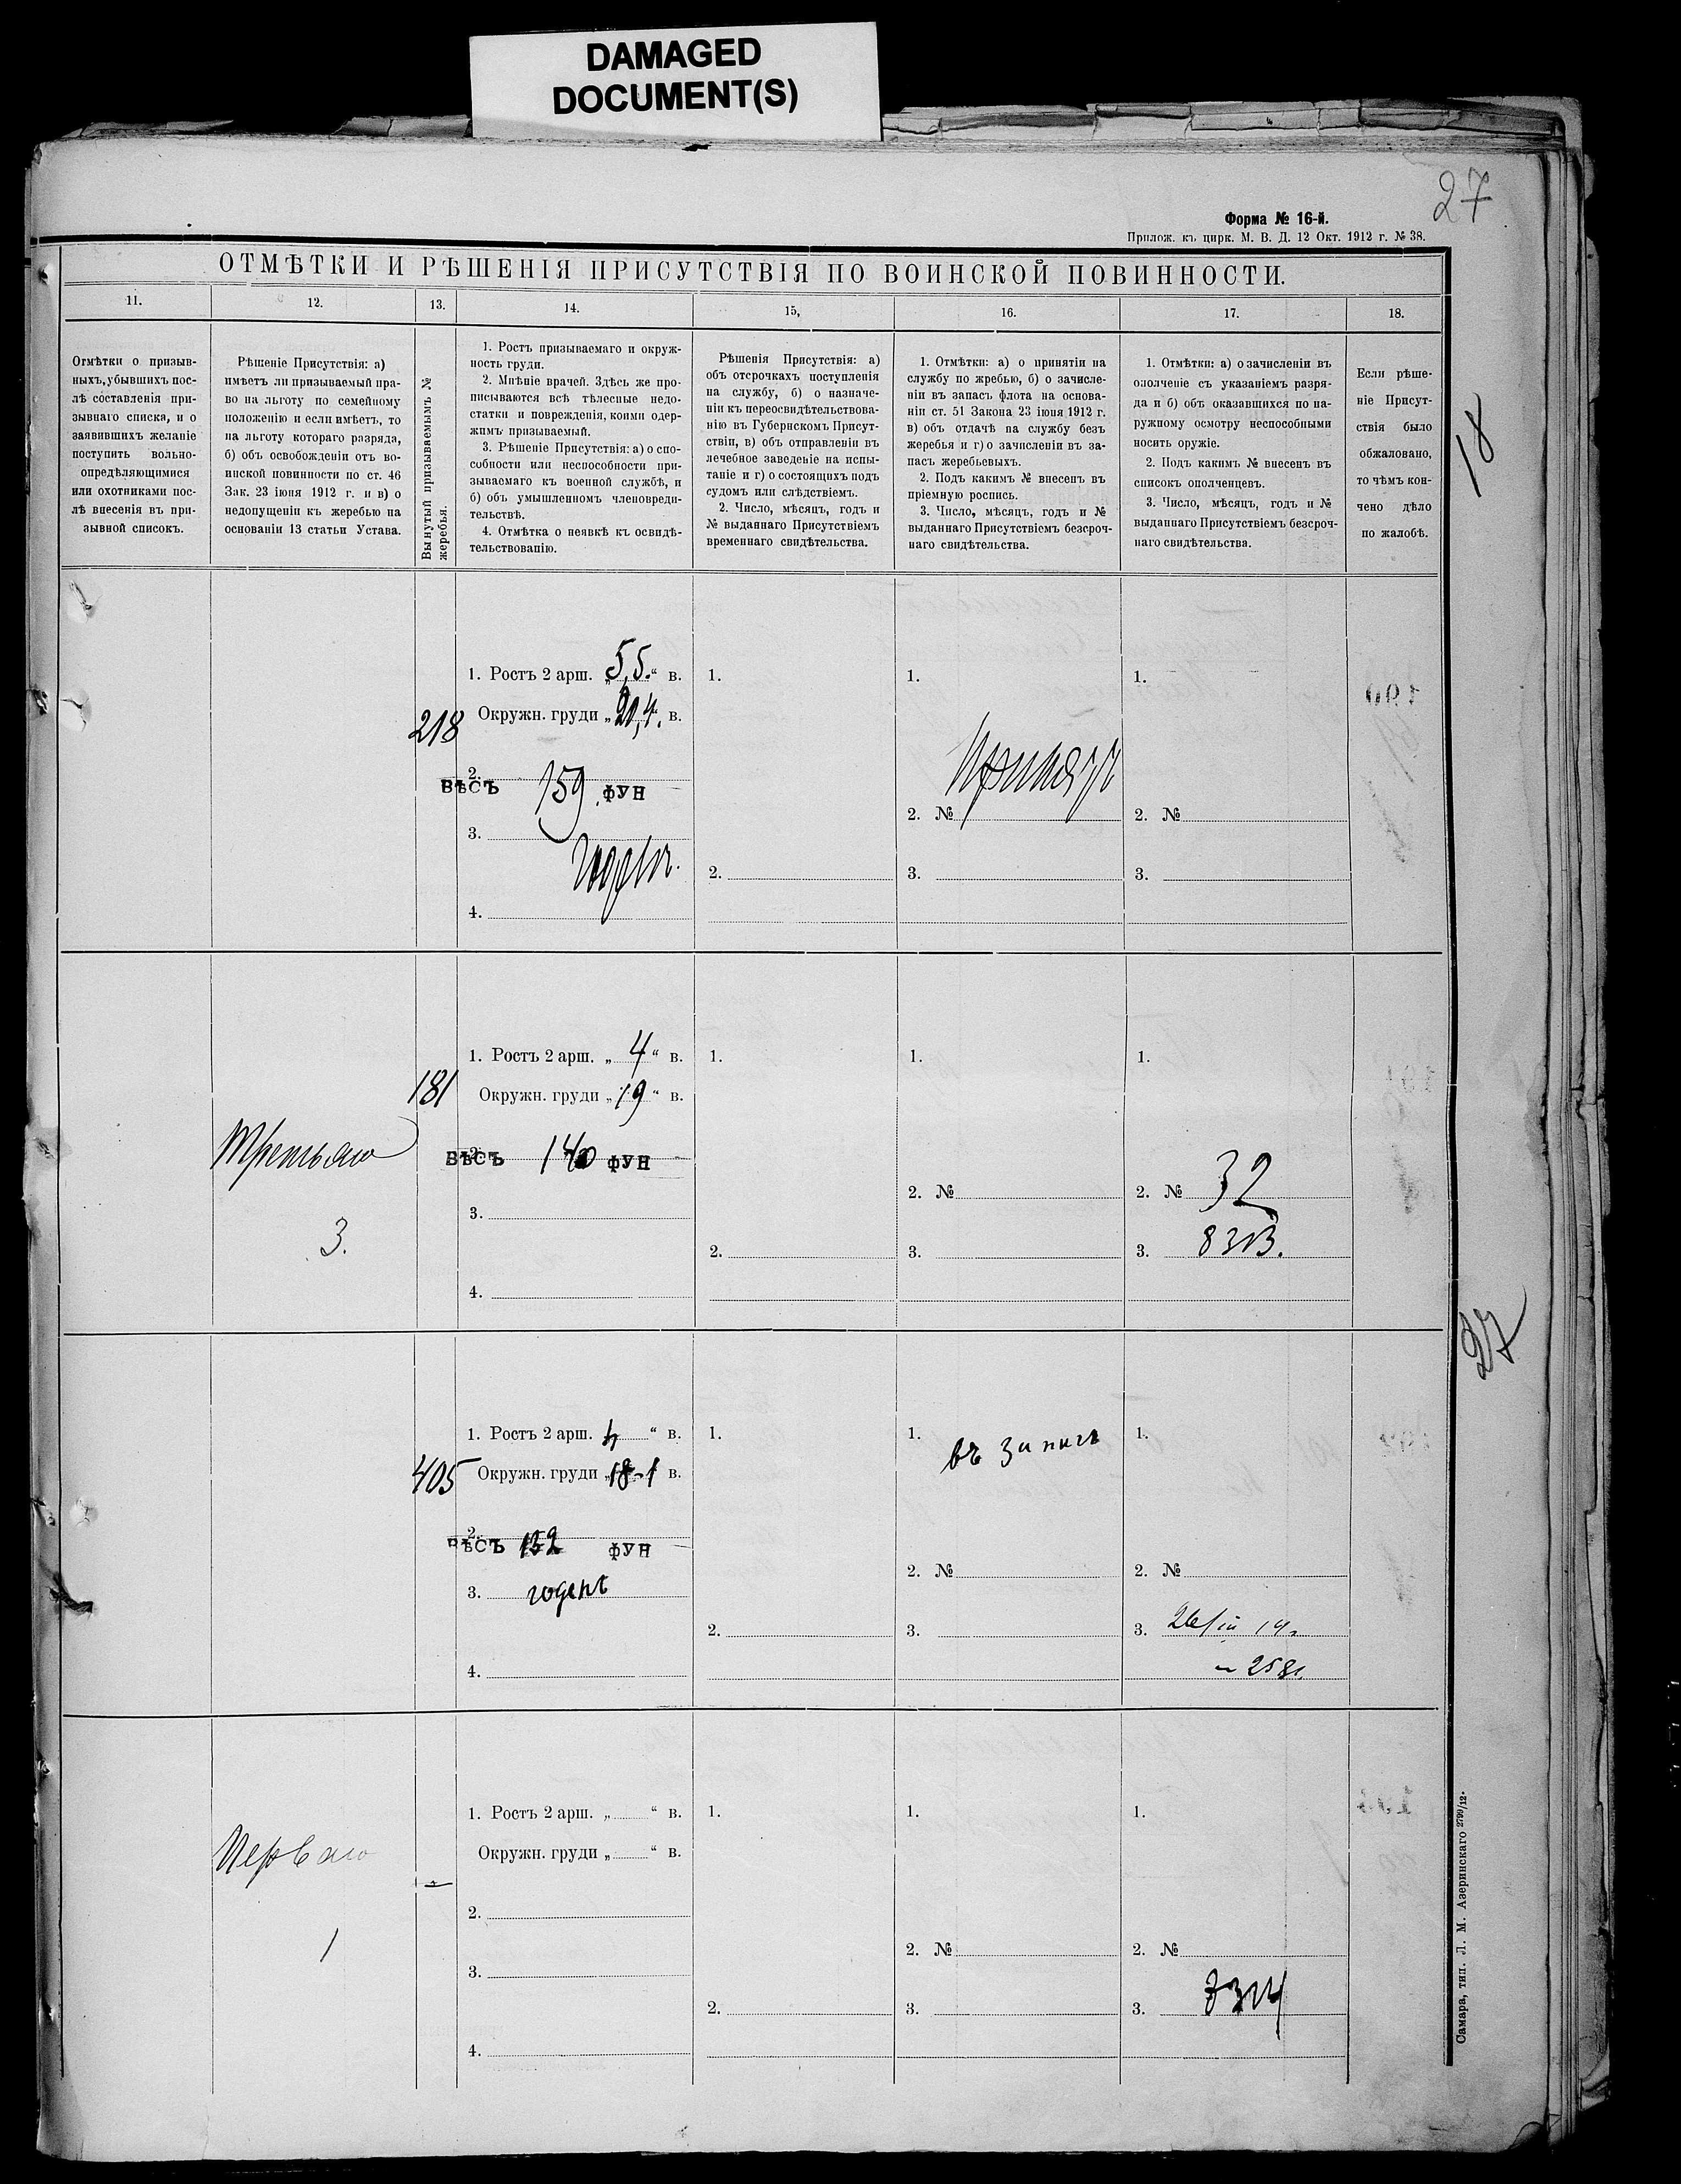 DAMAGED
DOCUMENT(S)
27
Форма № 16-й.
Прилож. къ цирк. М. В. Д. 12 Окт. 1912 г. № 38.
ОТМѢТКИ И РѢШЕНІЯ ПРИСУТСТВІЯ ПО ВОИНСКОЙ ПОВИННОСТИ.
11.
12.
13.
14.
15,
16.
17.
18.
Отмѣтки о призыв-
ныхъ, убывшихъ пос-
лѣ составленія при-
зывнаго списка, и о
заявившихъ желаніе
поступить вольно-
опредѣляющимися
или охотниками пос-
лѣ внесенія въ при-
зывной списокъ.
Рѣшеніе Присутствія: а)
имѣетъ ли призываемый пра-
во на льготу по семейному
положенію и если имѣетъ, то
на льготу котораго разряда,
б) объ освобожденіи отъ во-
инской повинности по ст. 46
Зак. 23 іюня 1912 г. и в) о
недопущеніи къ жеребью на
основаніи 13 статьи Устава.
Вынутый призываемымъ №
жеребья.
1. Ростъ призываемаго и окруж-
ность груди.
2. Мнѣніе врачей. Здѣсь же про-
писываются всѣ тѣлесные недо-
статки и поврежденія, коими одер-
жимъ призываемый.
3. Рѣшеніе Присутствія: а) о спо-
собности или неспособности при-
зываемаго къ военной службѣ, и
б) объ умышленномъ членовреди-
тельствѣ.
4. Отмѣтка о неявкѣ къ освидѣ-
тельствованію.
Рѣшенія Присутствія: а)
объ отсрочкахъ поступленія
на службу, б) о назначе-
ніи къ переосвидѣтельствова-
нію въ Губернскомъ Присут-
ствіи, в) объ отправленіи въ
лечебное заведеніе на испы-
таніе и г) о состоящихъ подъ
судомъ или слѣдствіемъ.
2. Число, мѣсяцъ, годъ и
№ выданнаго Присутствіемъ
временнаго свидѣтельства.
1. Отмѣтки: а) о принятіи на
службу по жребью, б) о зачисле-
ніи въ запасъ флота на основа-
ніи ст. 51 Закона 23 іюня 1912 г.
в) объ отдачѣ на службу безъ
жеребья и г) о зачисленіи въ за-
пасъ жеребьевыхъ.
2. Подъ какимъ № внесенъ въ
пріемную роспись.
3. Число, мѣсяцъ, годъ и №
выданнаго Присутствіемъ безсроч-
наго свидѣтельства.
1. Отмѣтки: а) о зачисленіи въ
ополченіе съ указаніемъ разря-
да и б) объ оказавшихся по на-
ружному осмотру неспособными
носить оружіе.
2. Подъ какимъ № внесенъ въ
списокъ ополченцевъ.
3. Число, мѣсяцъ, годъ и №
выданнаго Присутствіемъ безсроч-
наго свидѣтельства.
Если рѣше-
ніе Присут-
ствія было
обжаловано,
то чѣмъ кон-
чено дѣло
по жалобѣ.
18
218
1. Ростъ 2 арш. „5,5.“ в.
Окружн. груди „20,4. в.
2.
ВѢСЪ 159 ФУН
3.
годенъ.
4.
1.
2.
1.
Принять
2. №
3.
1.
2. №
3.
Третьяго
3.
181
1. Ростъ 2 арш. „4“ в.
Окружн. груди „19“ в.
2.
ВѢСЪ 140 ФУН
3.
4.
1.
2.
1.
2. №
3.
1.
2. № 32
3. 8313.
27
405
1. Ростъ 2 арш. 4 “ в.
Окружн. груди „18-1 в.
2.
ВѢСЪ 152 ФУН
3. годенъ
4.
1.
2.
1. въ запасъ
2. №
3.
1.
2. №
3.
Перваго
1
1. Ростъ 2 арш. „ “ в.
Окружн. груди „ “ в.
2.
3.
4.
1.
2.
1.
2. №
3.
1.
2. №
3.
Самара, тип. Л. М. Азеринскаго 2799/12-